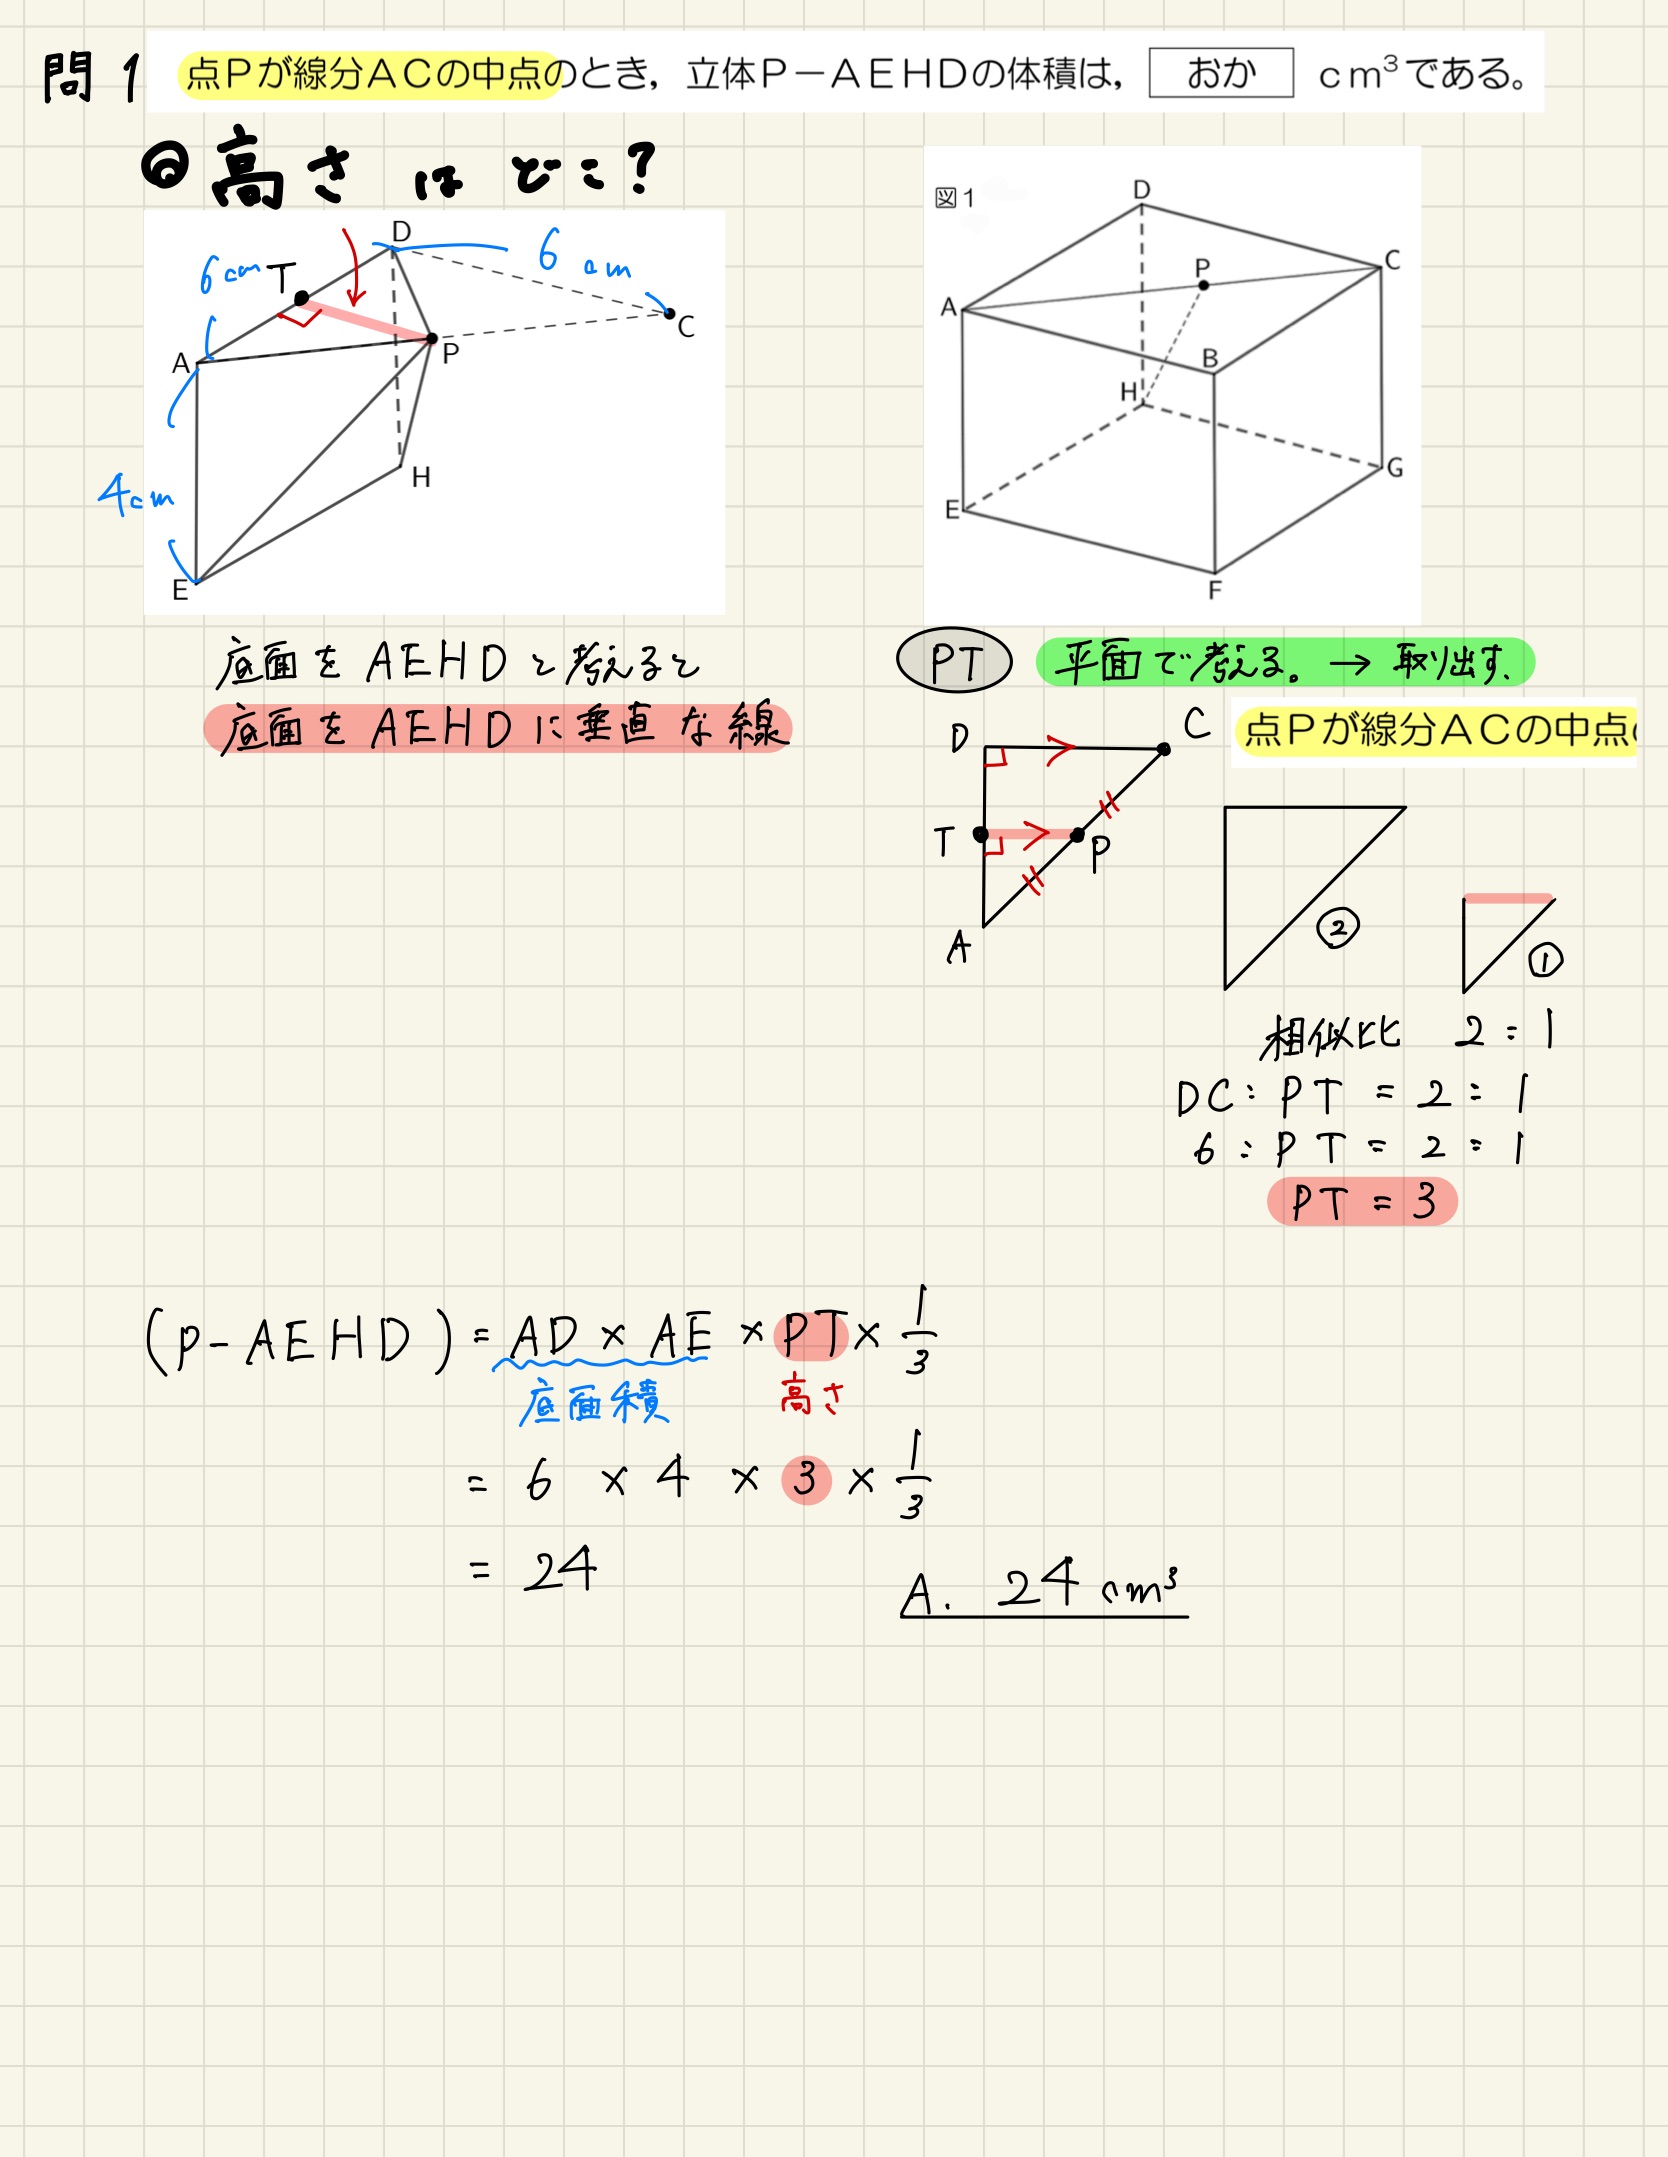 問1 点Ｐが線分ＡＣの中点のとき，立体Ｐ－ＡＥＨＤの体積は， おか ｃｍ³である。
◎高さはどこ？
D
6cm T
6cm
A
P
C
4cm
H
E
図1
D
C
P
A
B
H
G
E
F
底面をAEHDと考えると
底面をAEHDに垂直な線
PT 平面で考える。→ 取り出す.
点Ｐが線分ＡＣの中点
D
C
T
P
A
②
①
相似比 2:1
DC:PT = 2:1
6:PT = 2:1
PT = 3
(P-AEHD) = AD × AE × PT × 1/3
底面積 高さ
= 6 × 4 × 3 × 1/3
= 24
A. 24 cm³